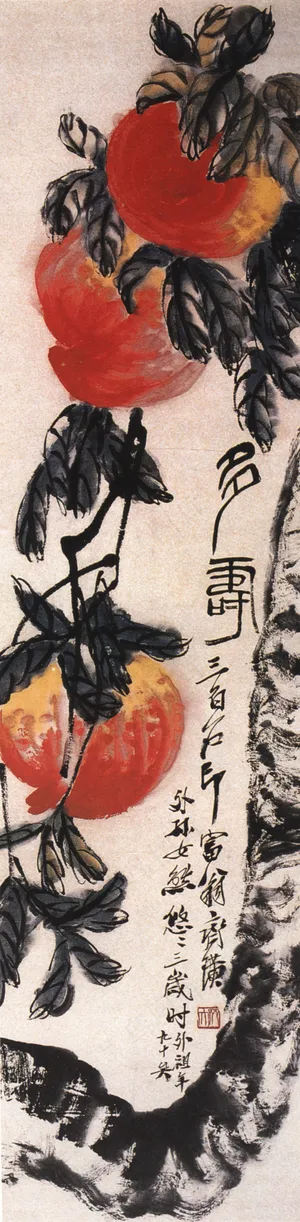 多壽
三百石印富翁齊璜
外孫女熊悠悠三歲时外祖年
九十矣